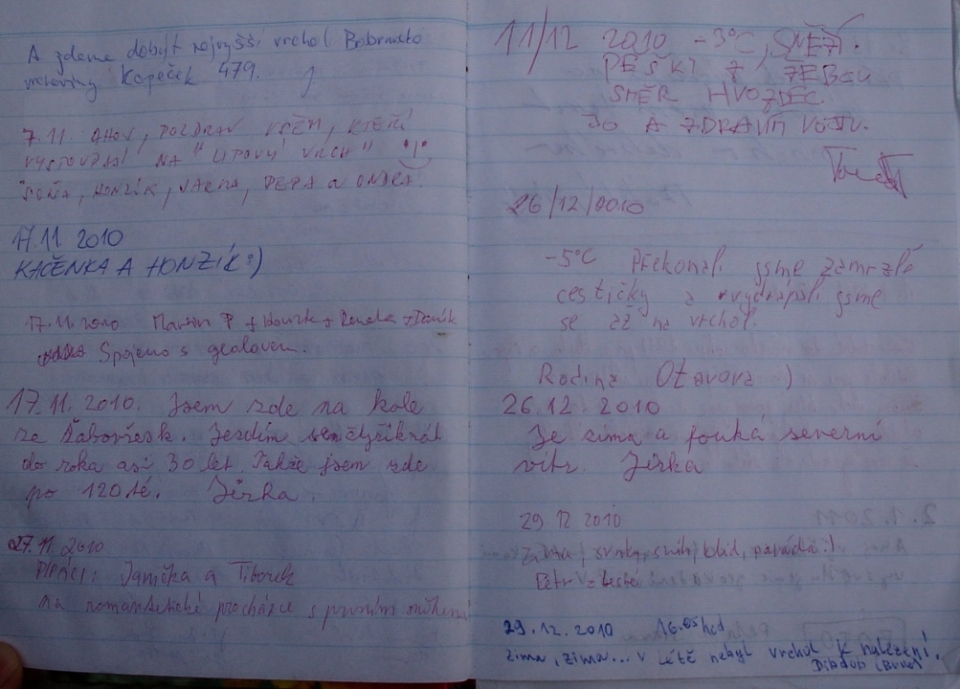 A zdeme dobyt nejvyšší vrchol Bobravské
vrchoviny Kopeček 479.
7.11. AHOJ, POZDRAV VŠEM, KTEŘÍ
VYSTOUPALI NA "LIPOVÝ VRCH"
SOŇA, HONZÍK, PEPA a ONDRA.
17.11 2010
KAČENKA A HONZÍK :)
17.11.2010 Martin P + + Renda +
Spojeno s geolovem.
17.11. 2010. Jsem zde na kole
ze Žabovřesk. Jezdím sem čtyřikrát
do roka asi 30 let. Takže jsem zde
po 120té. Jirka.
27.11.2010
PIPACI: Janička a Tiborek
na romantické procházce s prvním sněhem
11/12 2010 -3°C, SNĚŽÍ.
PĚŠKY Z
SMĚR HVOZDEC.
JO A ZDRAVÍM
26/12/2010
-5°C Překonali jsme zamrzlé
cestičky a vydrápali jsme
se až na vrchol.
Rodina Otavova :)
26.12. 2010
Je zima a fouká severní
vítr. Jirka
29 12 2010
Zima, svačky, sníh, klid, paráda :)
Petr V.
29.12.2010 16.05 hod
zima, zima... v létě nebyl vrchol k nalezení!
(Brno)